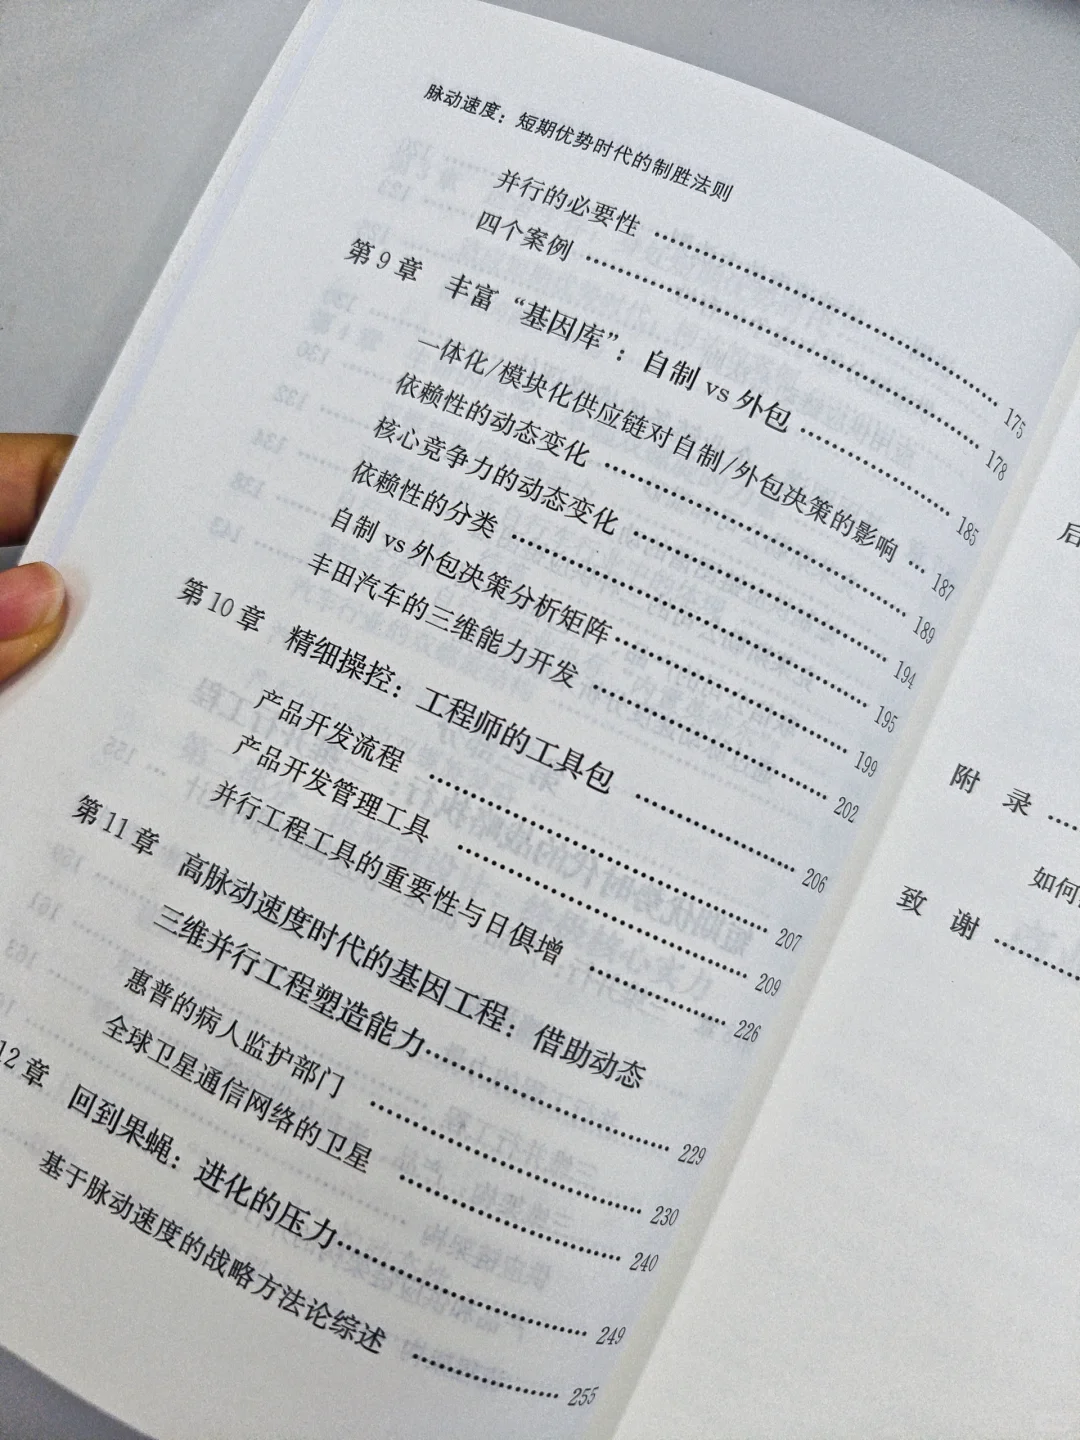 脉动速度：短期优势时代的制胜法则
并行的必要性 …… 175
四个案例 …… 178
第9章 丰富“基因库”：自制 vs 外包 …… 185
一体化/模块化供应链对自制/外包决策的影响 … 187
依赖性的动态变化 …… 189
核心竞争力的动态变化 …… 194
依赖性的分类 …… 195
自制 vs 外包决策分析矩阵 …… 199
丰田汽车的三维能力开发 …… 202
第10章 精细操控：工程师的工具包 …… 206
产品开发流程 …… 207
产品开发管理工具 …… 209
并行工程工具的重要性与日俱增 …… 226
第11章 高脉动速度时代的基因工程：借助动态
三维并行工程塑造能力 …… 229
惠普的病人监护部门 …… 230
全球卫星通信网络的卫星 …… 240
12章 回到果蝇：进化的压力 …… 249
基于脉动速度的战略方法论综述 …… 255
后
附 录 ……
如何
致 谢 ……